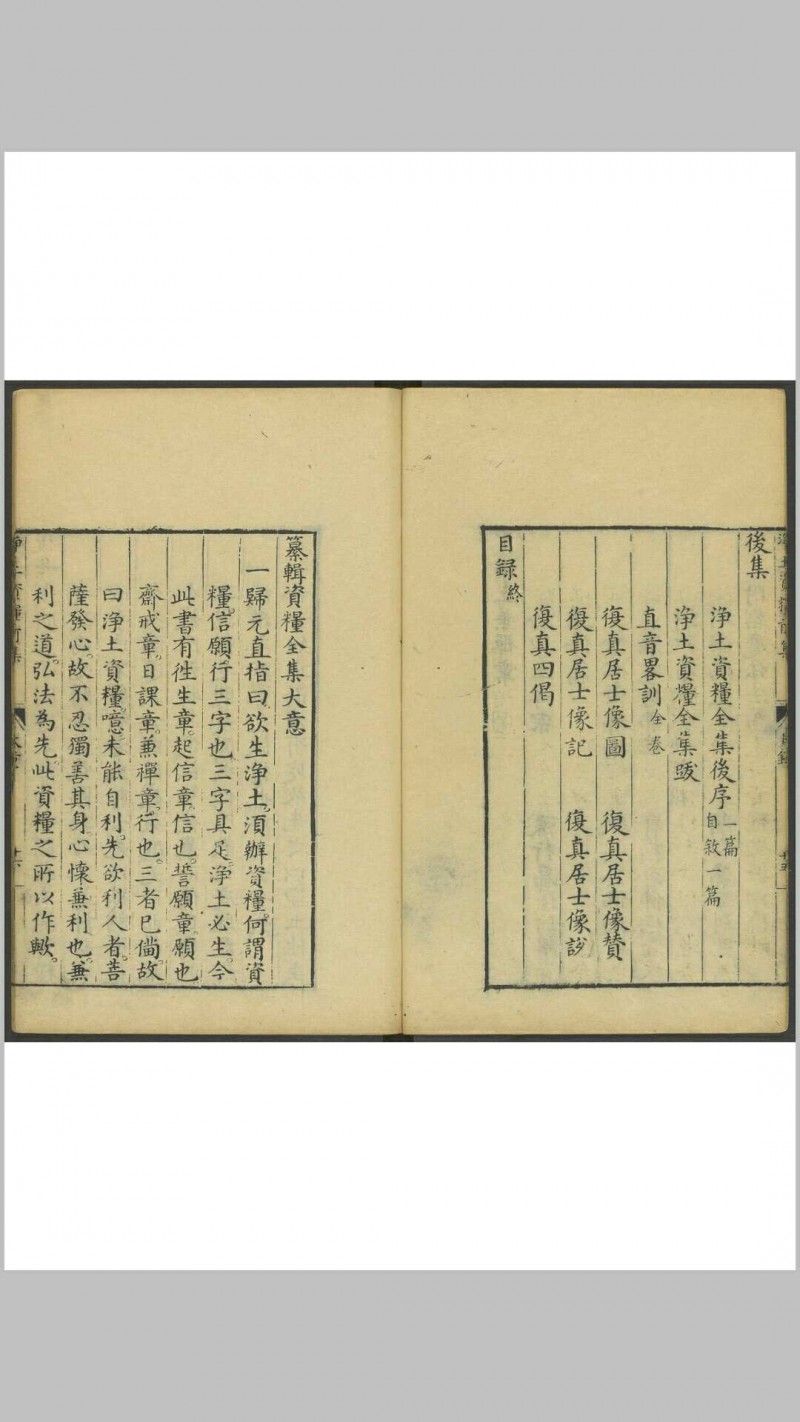 後集
浄土資糧全集後序 一篇 自敘一篇
浄土資糧全集跋
直音畧訓 全卷
復真居士像圖 復真居士像贊
復真居士像記
復真四偈
目録終
纂輯資糧全集大意
一歸元直指曰欲生浄土。須辦資糧。何謂資
糧。信願行三字也。三字具足浄土必生。今
此書有徃生章。起信章。信也。誓願章。願也
齋戒章。日課章。兼禪章。行也。三者已僃。故
曰浄土資糧。噫未能自利。先欲利人者。菩
薩發心。故不忍獨善其身。心懷兼利也。兼
利之道。弘法為先。此資糧之所以作歟。